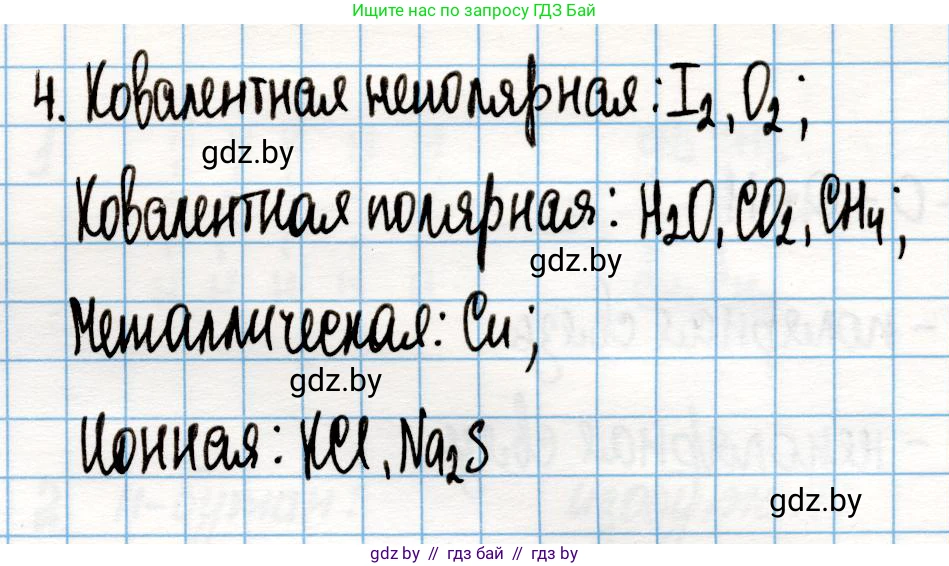 Ищите нас по запросу ГДЗ Бай
4. Ковалентная неполярная: I₂, O₂;
gdz.by
Ковалентная полярная: H₂O, CO₂, CH₄;
gdz.by
Металлическая: Cu;
gdz.by
Ионная: KCl, Na₂S
gdz.by
gdz.by // гдз бай // гдз by